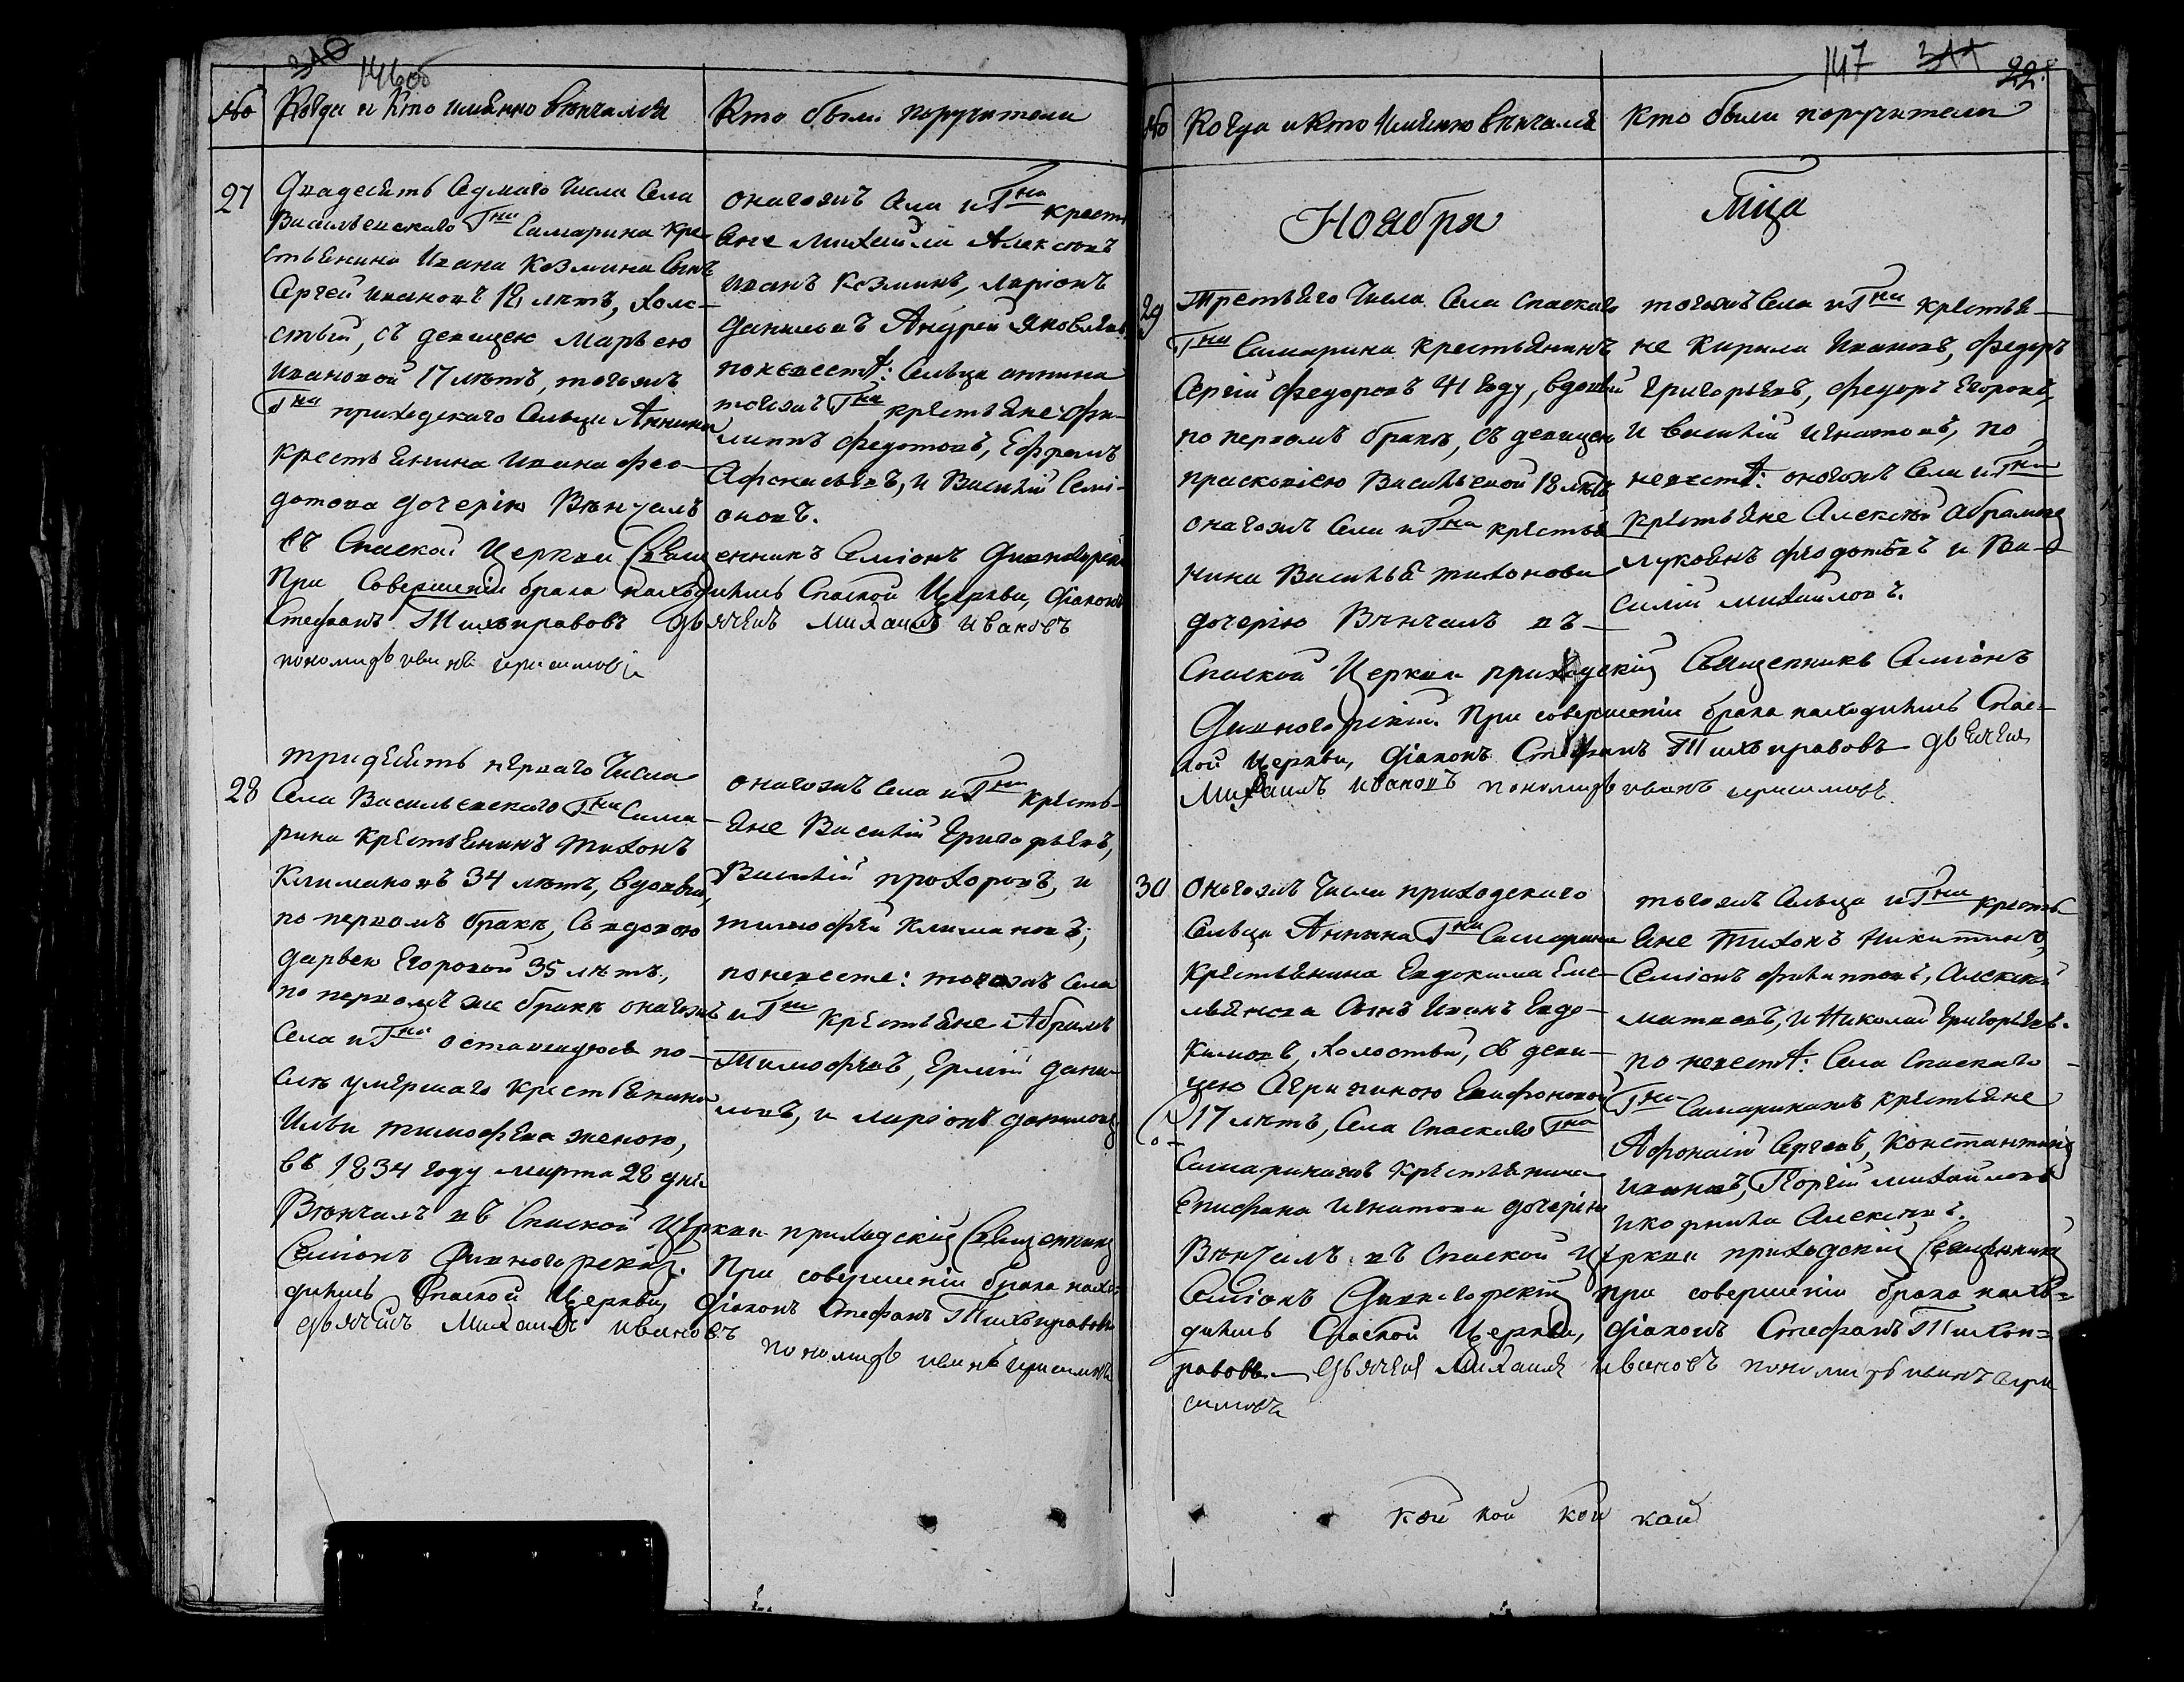 310 146об
№ Когда и Кто имянно венчался
Кто были поручители
27
Двадесять Седмаго Числа Села
Васильевскаго Гна Самарина Кре-
стьянина Ивана Козмина Сынъ
Сергей Ивановъ 18 летъ, холо-
стый, съ девицею Марьею
Ивановой 17 летъ, тогожъ
Гна приходскаго Сельца Аннина
Крестьянина Ивана Фео-
дотова дочерію Венчалъ
въ Спаской Церкви Священникъ Семіонъ Дивногорскій
При Совершеніи брака находились Спаской Церкви, Діаконъ
Стефанъ Тихонравовъ дьячекъ Михаилъ Ивановъ
пономарь иванъ герасимовъ
онагожъ Села и Гна кресть
яне Михайла Алексеевъ
Иванъ Козминъ, Ларіонъ
Даниловъ Андрей Яковлевъ
по невесте: Сельца аннина
тогожъ Гна крестьяне Фи-
липпъ Федотовъ, Ефремъ
Афонасьевъ, и Василій Семі-
оновъ.
28
тридесять перваго Числа
Села Васильевскаго Гна Сама-
рина Крестьянинъ Тихонъ
Климановъ 34 летъ, вдовый,
по первомъ браке, Съ вдовою
дарьею Егоровой 35 летъ,
по первомъ же браке онагожъ
Села и Гна оставшеюся по-
сле умершаго Крестьянина
Ильи тимофеева женою,
въ 1834 году марта 28 дня
Венчалъ въ Спаской Церкви приходскій Священникъ
Семіонъ Дивногорскій. При совершеніи брака нахо-
дились Спаской Церкви, Діаконъ Стефанъ Тихонравовъ
дьячекъ Михаилъ Ивановъ
пономарь иванъ герасимовъ
онагожъ Села и Гна Кресть-
яне Василій Григорьевъ,
Василій прохоровъ, и
тимофей Климановъ;
по невесте: тогожъ Села
и Гна Крестьяне Абрамъ
Тимофеевъ, Ермій дани-
ловъ, и ларіонъ даниловъ
147 311 22.
№ Когда и Кто Имянно венчался
Кто были поручители
Ноября
Мца
29
Третьяго Числа Села Спаскаго
Гна Самарина крестьянинъ
Сергій Федоровъ 41 году, вдовый
по первомъ браке, съ девицею
прасковіею Васильевой 18 летъ
онагожъ Села и Гна крестья
нина Василья тихонова
дочерію Венчалъ въ
Спаской Церкви приходскій Священникъ Семіонъ
Дивногорскій. При совершеніи брака находились Спас-
кой Церкви, Діаконъ Стефанъ Тихонравовъ дьячекъ
Михаилъ Ивановъ пономарь иванъ герасимовъ
тогожъ Села и Гна крестья-
не Кирила Ивановъ, Федоръ
Григорьевъ, Федоръ Егоровъ,
и Василій Игнатовъ, по
невесте: оногожъ Села и Гна
крестьяне Алексей Абрамовъ
Луковнъ Феодотовъ и Ва-
силій михайловъ.
30
Оногожъ Числа приходскаго
Сельца Аннина Гна Самарина
Крестьянина Евдокима Еме-
льянова Сынъ Иванъ Евдо-
кимовъ, холостый, съ деви-
цею Агрипиною Епифановой
17 летъ, Села Спаскаго Гна
Самариныхъ Крестьянина
Епифана Игнатова дочерію
Венчалъ въ Спаской Церкви приходскій Священникъ
Семіонъ Дивногорскій При совершеніи брака нахо-
дились Спаской Церкви, Діаконъ Стефанъ Тихон-
равовъ. дьячекъ Михаилъ Ивановъ пономарь иванъ гера
симовъ
тогожъ Сельца и Гна кресть
яне Тихонъ Никитинъ,
Семіонъ Филиповъ, Алексей
матвеевъ, и Николай Григорьевъ.
по невесте: Села Спаскаго
Гна Самариныхъ крестьяне
Афонасій Сергеевъ, Константинъ
Ивановъ, Георгій михайловъ
и корнила Алексеевъ.
кой кой кой кой